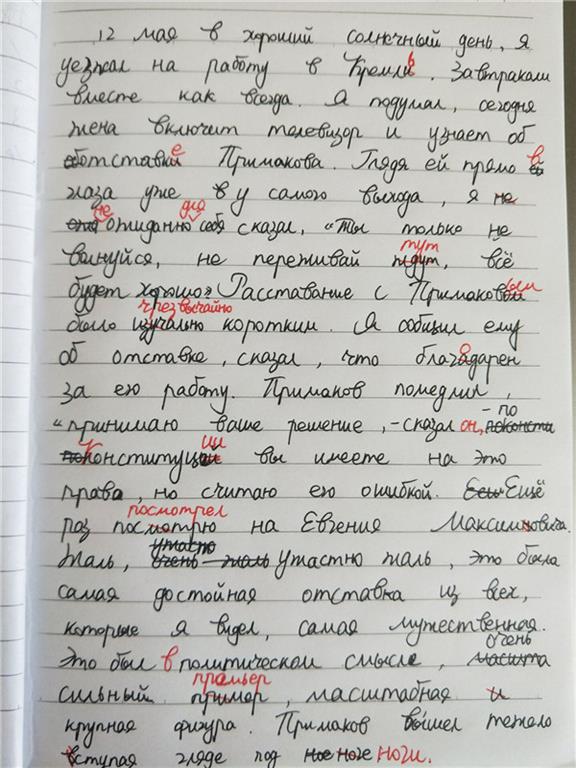 12 мая в хороший солнечный день, я
уезжал на работу в Кремль. Завтракали
вместе как всегда. Я подумал, сегодня
жена включит телевизор и узнает об
отставке Примакова. Глядя ей прямо в
глаза уже в у самого выхода, я
неожиданно для себя сказал, "ты только не
волнуйся, не переживай тут, всё
будет хорошо" Расставание с Примаковым
было чрезвычайно коротким. Я сообщил ему
об отставке, сказал, что благодарен
за его работу. Примаков помедлил,
"принимаю ваше решение, - сказал он, - по
конституции вы имеете на это
права, но считаю его ошибкой. Ещё
раз посмотрел на Евгения Максимовича.
Жаль, ужастно жаль, это была
самая достойная отставка из всех,
которые я видел, самая мужественная.
Это был в политическом смысле, очень
сильный премьер, масштабная и
крупная фигура. Примаков вышел тежело
вступая глядя под ноги.